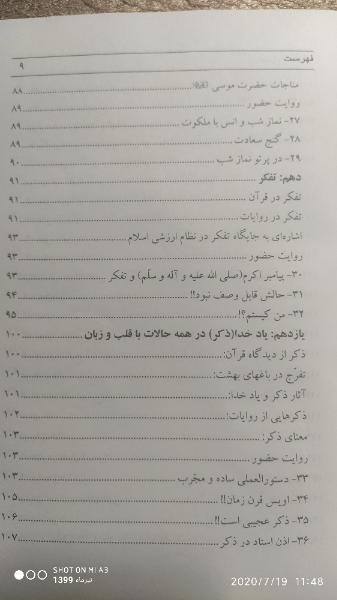 فهرست ۹
مناجات حضرت موسی ........ ۸۸
روایت حضور ........ ۸۹
۲۷- نماز شب و انس با ملکوت ........ ۸۹
۲۸- گنج سعادت ........ ۸۹
۲۹- در پرتو نماز شب ........ ۹۰
دهم: تفکر ........ ۹۱
تفکر در قرآن ........ ۹۱
تفکر در روایات ........ ۹۱
اشاره‌ای به جایگاه تفکر در نظام ارزشی اسلام ........ ۹۳
روایت حضور ........ ۹۳
۳۰- پیامبر اکرم(صلی الله علیه و آله و سلّم) و تفکر ........ ۹۳
۳۱- حالش قابل وصف نبود!! ........ ۹۴
۳۲- من کیستم؟! ........ ۹۵
یازدهم: یاد خدا(ذکر) در همه حالات با قلب و زبان ........ ۱۰۰
ذکر از دیدگاه قرآن: ........ ۱۰۰
تفرّج در باغهای بهشت: ........ ۱۰۱
آثار ذکر و یاد خدا: ........ ۱۰۱
ذکرهایی از روایات: ........ ۱۰۲
معنای ذکر: ........ ۱۰۳
روایت حضور ........ ۱۰۳
۳۳- دستورالعملی ساده و مجّرب ........ ۱۰۳
۳۴- اویس قرن زمان!! ........ ۱۰۵
۳۵- ذکر عجیبی است!! ........ ۱۰۶
۳۶- اذن استاد در ذکر ........ ۱۰۷
SHOT ON MI A3
تیرماه 1399
2020/7/19 11:48